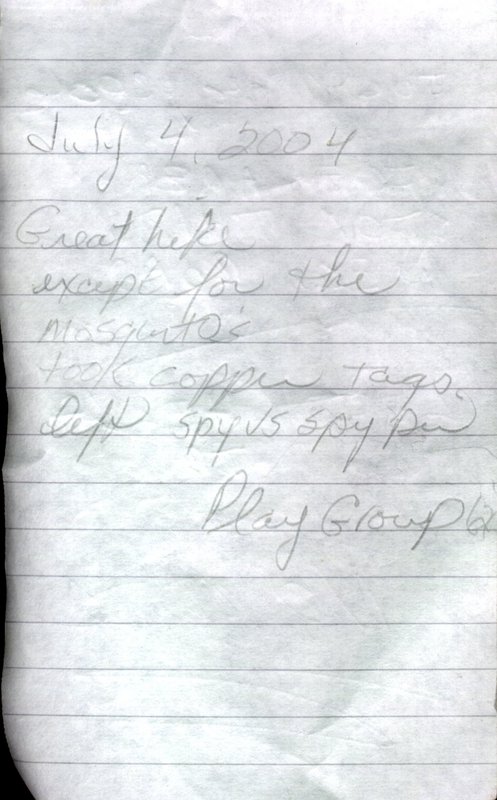 July 4, 2004
Great hike
except for the
mosquito's
took copper tags.
left spy vs spy pin
Play Group 62